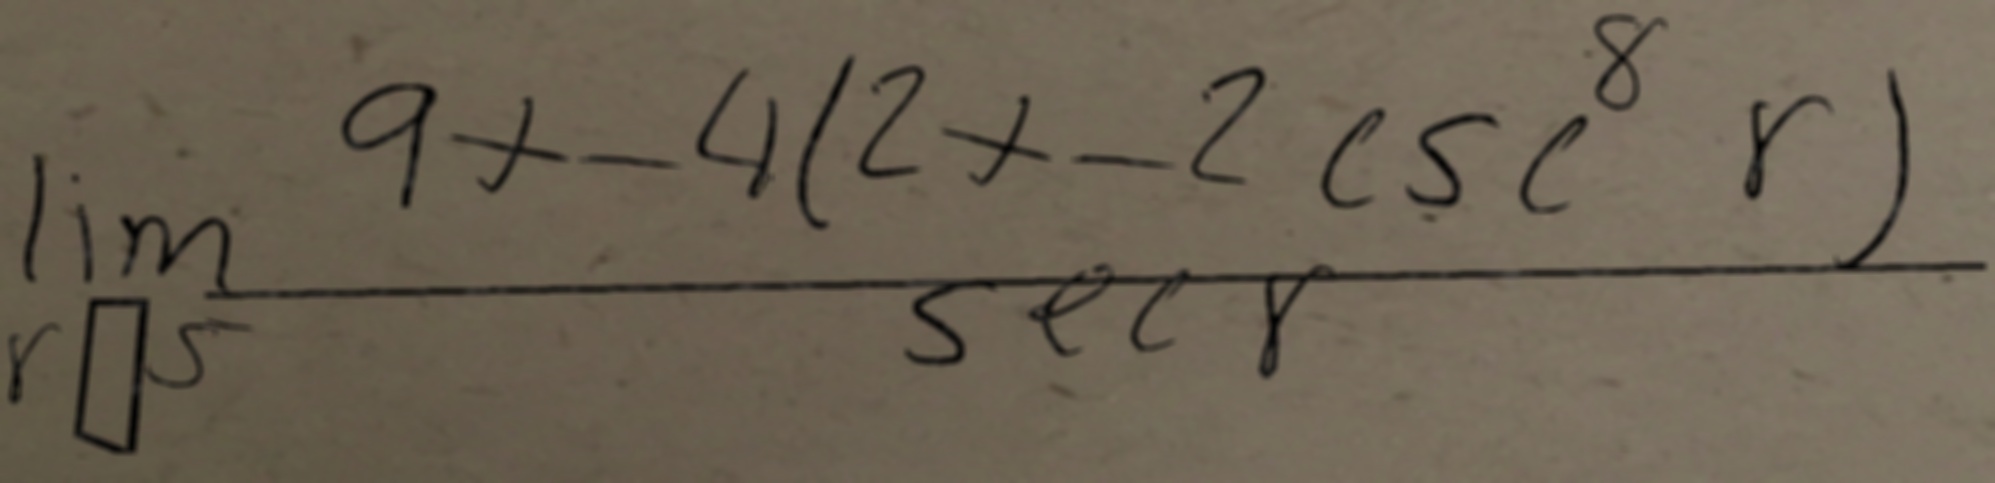 lim_{r▯5} \frac{9x-4(2x-2csc^8 r)}{sec r}